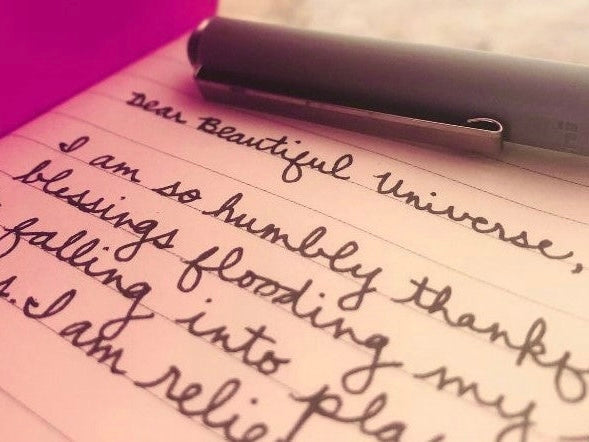 Dear Beautiful Universe,
I am so humbly thankf
blessings flooding my
falling into pla
s. I am relie